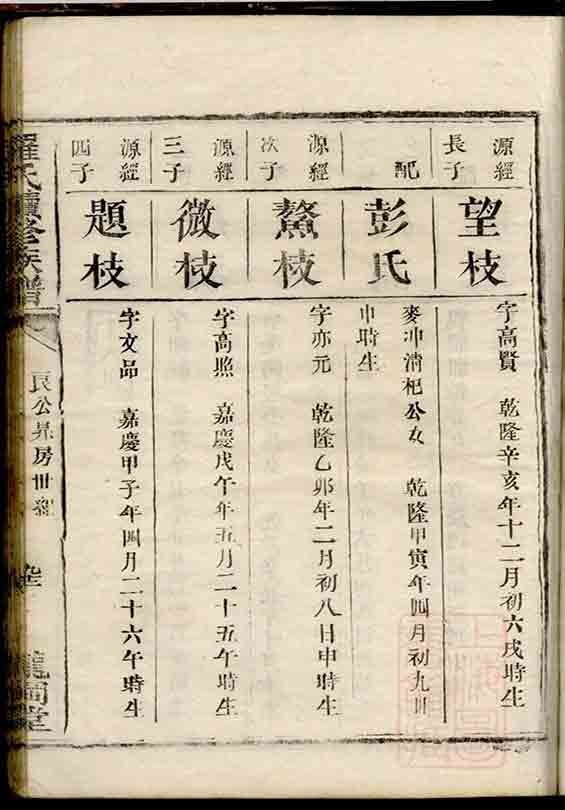 源經長子
望枝
字高賢 乾隆辛亥年十二月初六戌時生
配
彭氏
麥冲清杞公女 乾隆甲寅年四月初九卅
申時生
源經次子
鰲枝
字亦元 乾隆乙卯年二月初八日申時生
源經三子
微枝
字高照 嘉慶戊午年五月二十五午時生
源經四子
題枝
字文品 嘉慶甲子年四月二十六午時生
羅氏續修族譜
房世
堂